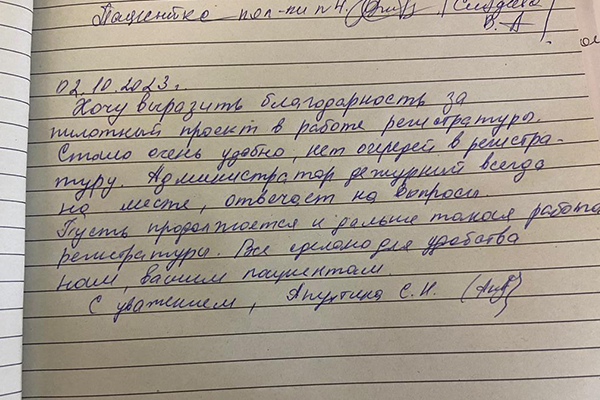 Пациентка пол-ки №4.
В. А
02.10.2023 г.
Хочу выразить благодарность за
пилотный проект в работе регистратуры.
Стало очень удобно, нет очередей в регистра-
туру. Администратор дежурный всегда
на месте, отвечает на вопросы.
Пусть продолжается и дальше такая работа
регистратуры. Все сделано для удобства
нам, вашим пациентам
С уважением, Апухтина С.Н.